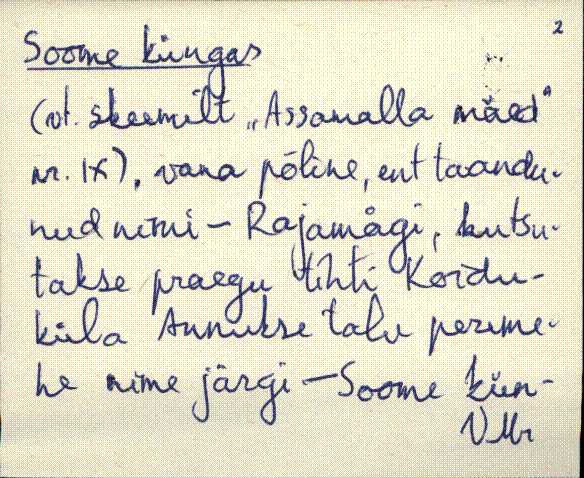 2
Soome küngas
(vt. skeemilt „Assamalla mäed"
nr. IX), vana põline, ent taandu-
nud nimi - Rajamägi, kutsu-
takse praegu tihti Koidu-
küla Annukse talu pereme-
he nime järgi - Soome kün-
VMr